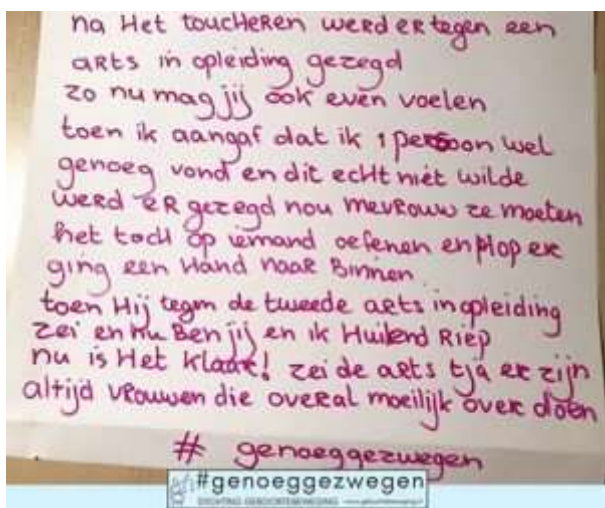 na Het toucheren werd er tegen een
arts in opleiding gezegd
zo nu mag jij ook even voelen
toen ik aangaf dat ik 1 persoon wel
genoeg vond en dit echt niet wilde
werd er gezegd nou mevrouw ze moeten
het toch op iemand oefenen en plop er
ging een Hand naar Binnen
toen Hij tegen de tweede arts in opleiding
zei en nu Ben jij en ik Huilend Riep
nu is Het klaar! zei de arts tja er zijn
altijd vrouwen die overal moeilijk over doen
# genoeggezwegen
#genoeggezwegen
STICHTING GEBOORTEBEWEGING